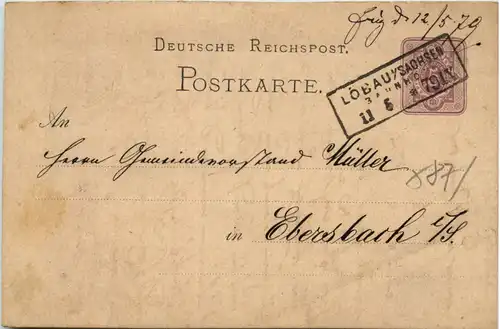 12/5 79
DEUTSCHE REICHSPOST.
POSTKARTE.
LÖBAU/SACHSEN
BAHNHOF
11 5 * 79 IV
An
Herrn Gemeindevorstand Müller
887/
in Ebersbach i/S.